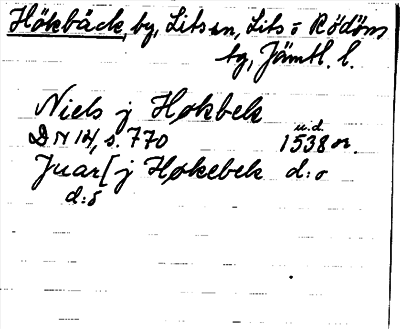 Hökbäck, by, Lits sn, Lits o Rödöns
tg, Jämtl. l.
Niels j Høkbek
u.d.
DN 14, s. 770 1538 or.
Juar[ j Høkebek d:o
d:o